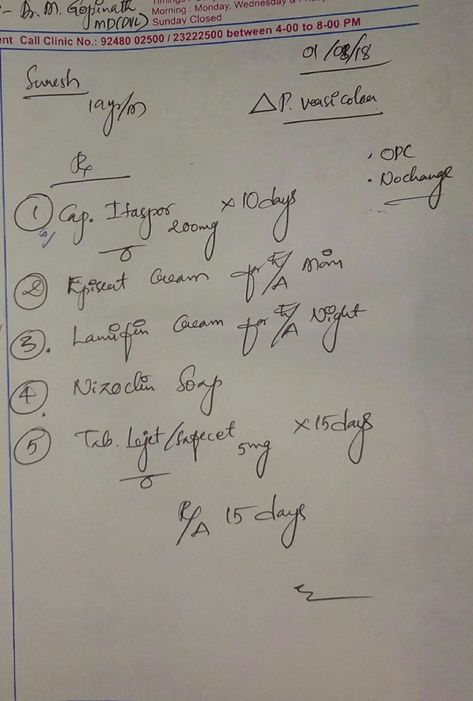 :- Dr. M. Gopinath
MD(DVL)
Morning : Monday, Wednesday &
Sunday Closed
ent Call Clinic No.: 92480 02500 / 23222500 between 4-00 to 8-00 PM
01/08/18
Suresh
19y/m
△ P. versicolor
Rx
• OPC
• No change
① Cap. Itaspor 200mg x 10 days
② Episert Cream for E/A Morn
③. Lamifin Cream for E/A Night
④ Nizoclin Soap
⑤ Tab. Lejet/ 5mg x 15 days
R/A 15 days